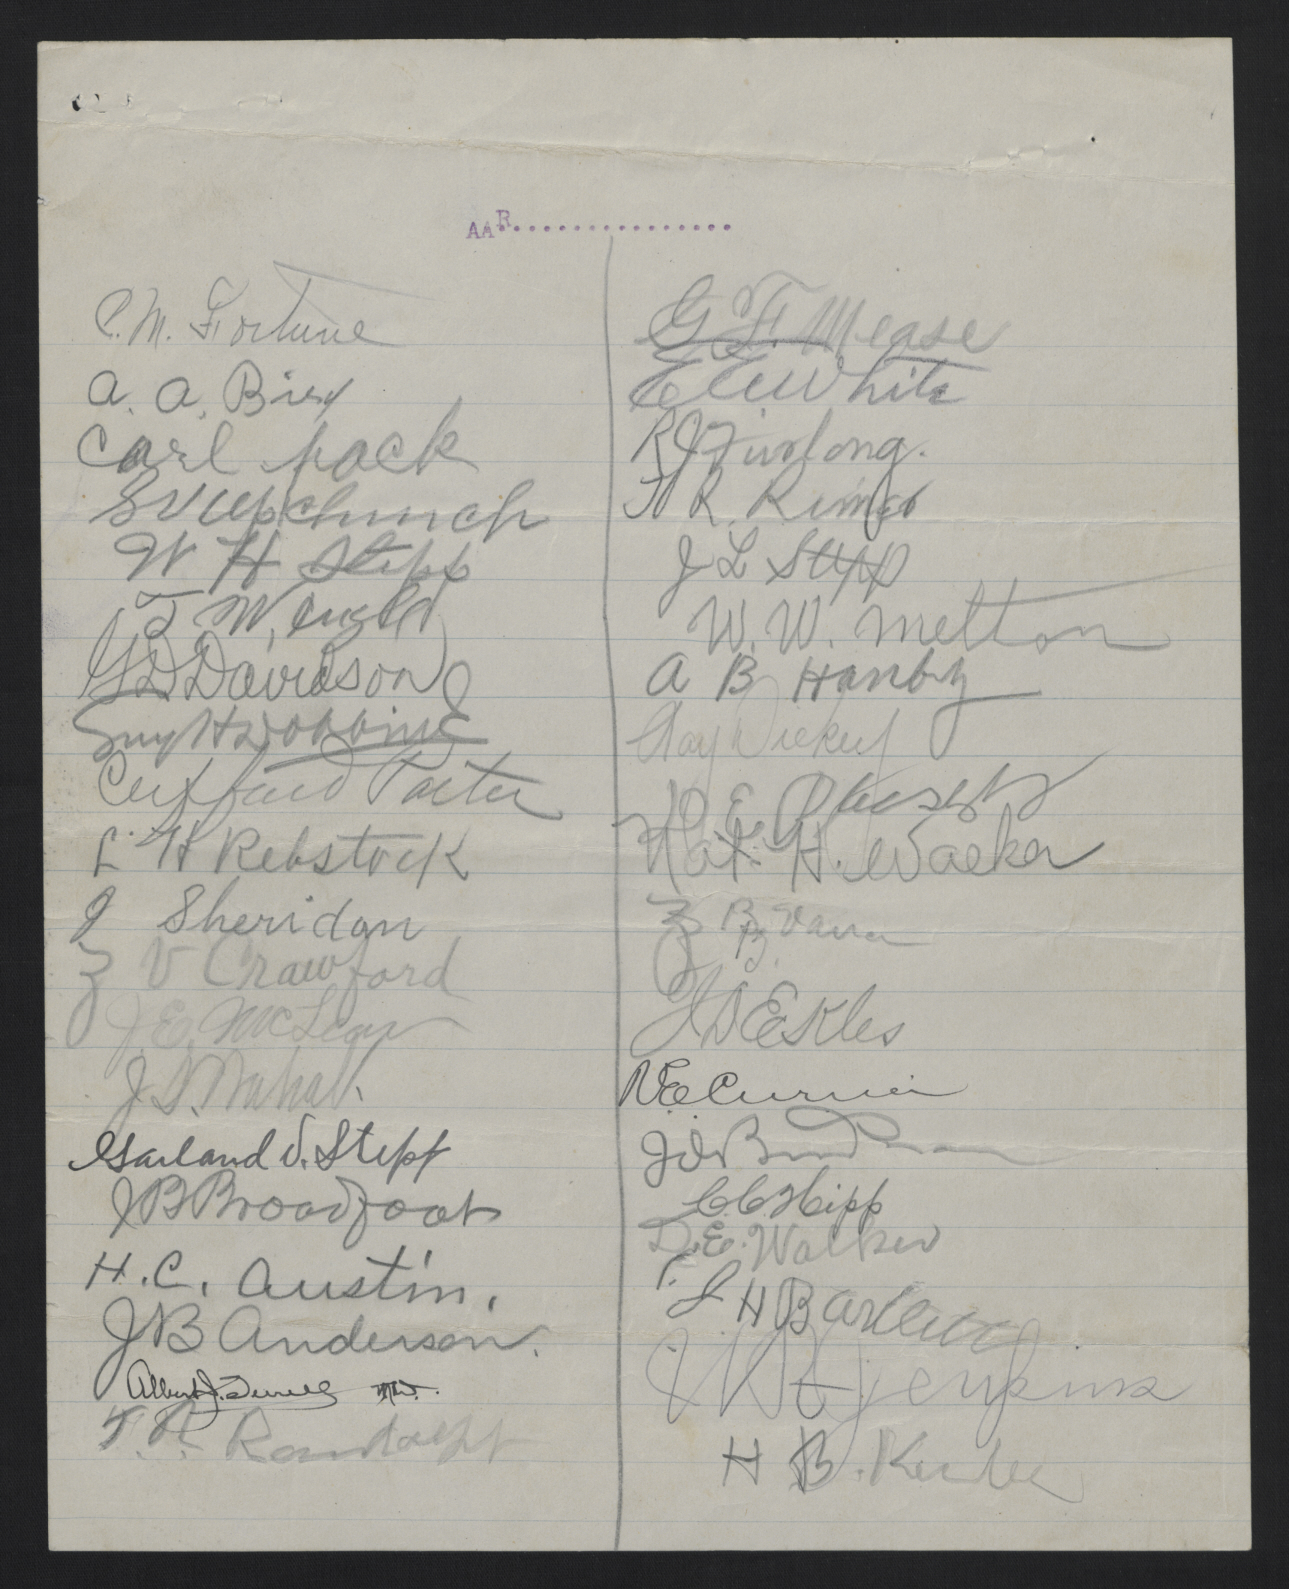 AAR................
C. M. Fortune
A. A. Bixy
Carl pack
S V Upchurch
W H Stepp
J W,
G D Davidson
Guy H Dobbins
Clifford Porter
L. H Rebstock
J Sheridan
Z V Crawford
J. E. McLean
J. S.
Garland V. Stepp
J B Broadfoot
H. C. Austin.
J B Anderson.
Albert J. Terrell M.D.
T. R. Randolph
G. F. Mease
E E White
R J Furlong.
R. Rimer
J L Stepp
W. W. Melton
A B Hanby
Gay Dickey
E
Nat. H. Walker
Z B. Vance
B.
J D Ekles
N E Currier
J D
C C Hipp
D. E. Walker
J H Bartlett
Jenkins
H B.